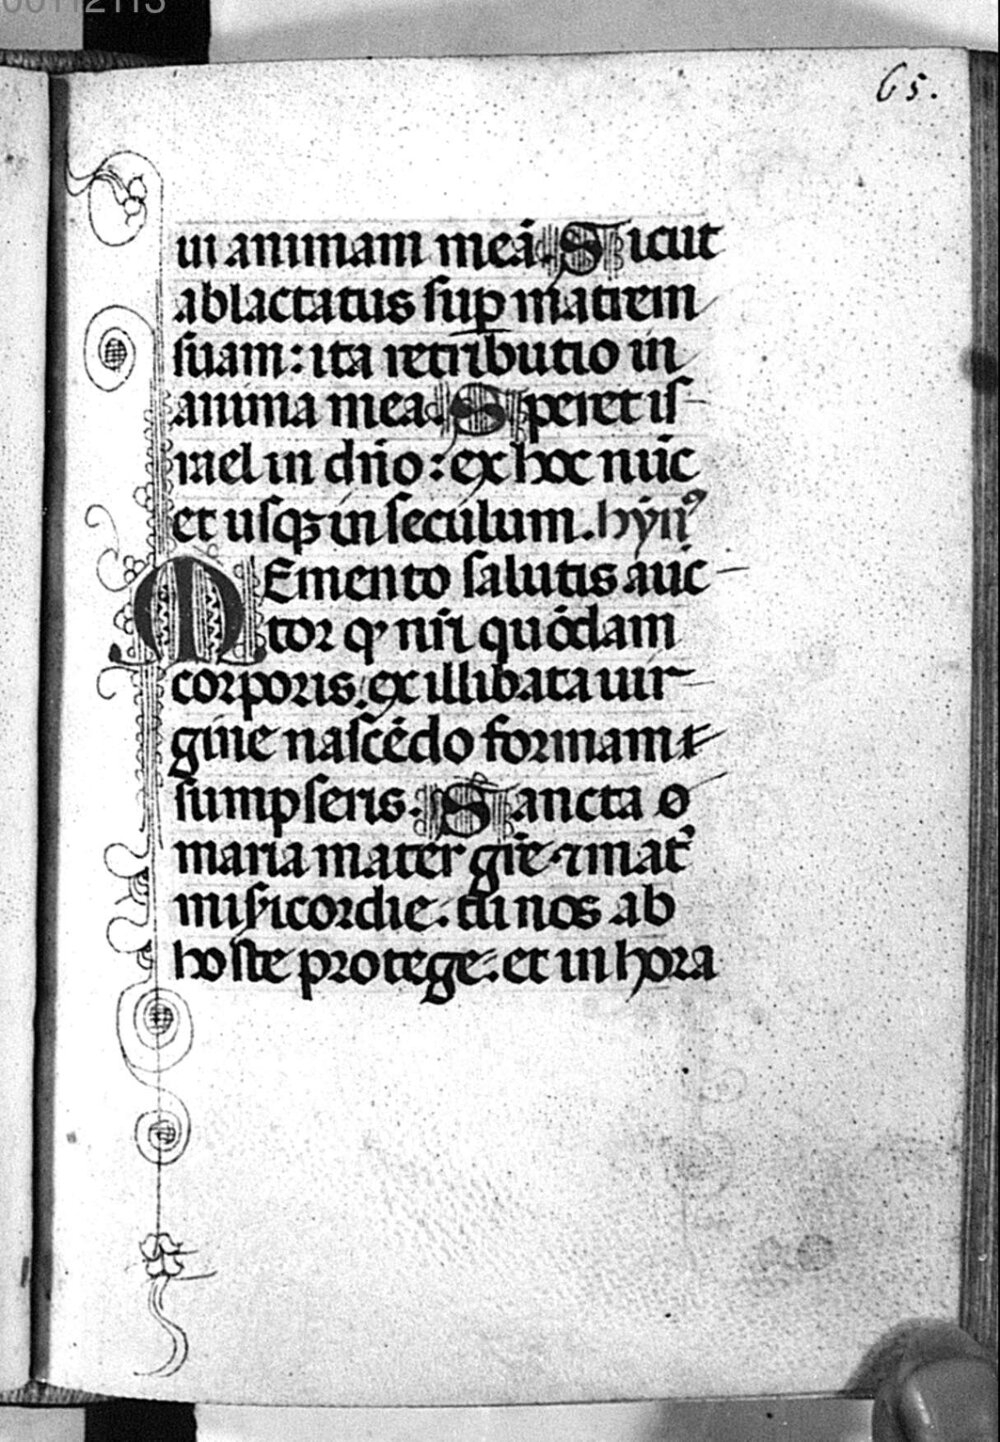 65.
ui animam meā. Sicut
ablactatus sup̱ matrem
suam: ita retributio in
anima mea. Speret is-
rael in dn̄o: ex hoc nūc
et usqꝫ in seculum. hȳnꝰ
MEmento salutis auc-
tor qͥ nr̄i quōdam
corporis: ex illibata uir-
gine nascēdo formam
sumpseris. Sancta o
maria mater gr̄e ⁊ mat̄
misericordie: tu nos ab
hoste protege: et in hora